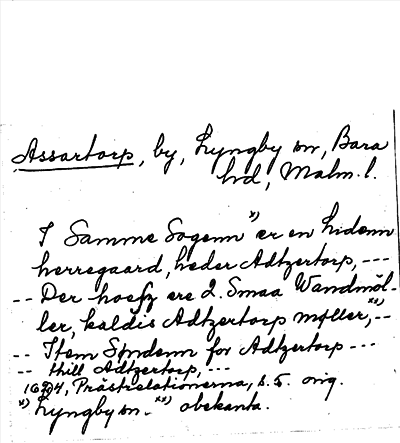 Assartorp, by, Lyngby sn, Bara
hd, Malm. l.
I Samme Sogenn x) er en liidenn
herregaard, heder Adtzertorp, ---
-- Der hoesz ere 2. Smaa Wandmöl-
ler, kaldis Adtzertorp møller, xx) --
-- Item Sønden for Adtzertorp ---
-- thill Adtzertorp, ---
1624, Prästrelationerna, s. 5. orig.
x) Lyngby sn. xx) obekanta.